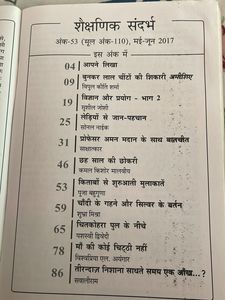 शैक्षणिक संदर्भ
अंक-53 (मूल अंक-110), मई-जून 2017
इस अंक में
04 आपने लिखा
09 बुनकर लाल चींटों की शिकारी
विपुल कीर्ति शर्मा
19 विज्ञान और प्रयोग - भाग 2
सुशील जोशी
25 लेड़ियों से जान-पहचान
31 प्रोफेसर अमन मदान के साथ बातचीत
साक्षात्कार
46 छह साल की छोकरी
कमल किशोर मालवीय
53 किताबों से शुरुआती मुलाकातें
पूजा बहुगुणा
59 चाँदी के गहने और सिल्वर के बर्तन
शुभ्रा मिश्रा
65 चितकोहरा पुल के नीचे
यशस्वी द्विवेदी
78 माँ की कोई चिट्ठी नहीं
विश्वप्रिया एल. अयंगार
86 तीरन्दाज़ निशाना साधते समय एक आँख...?
सवालीराम